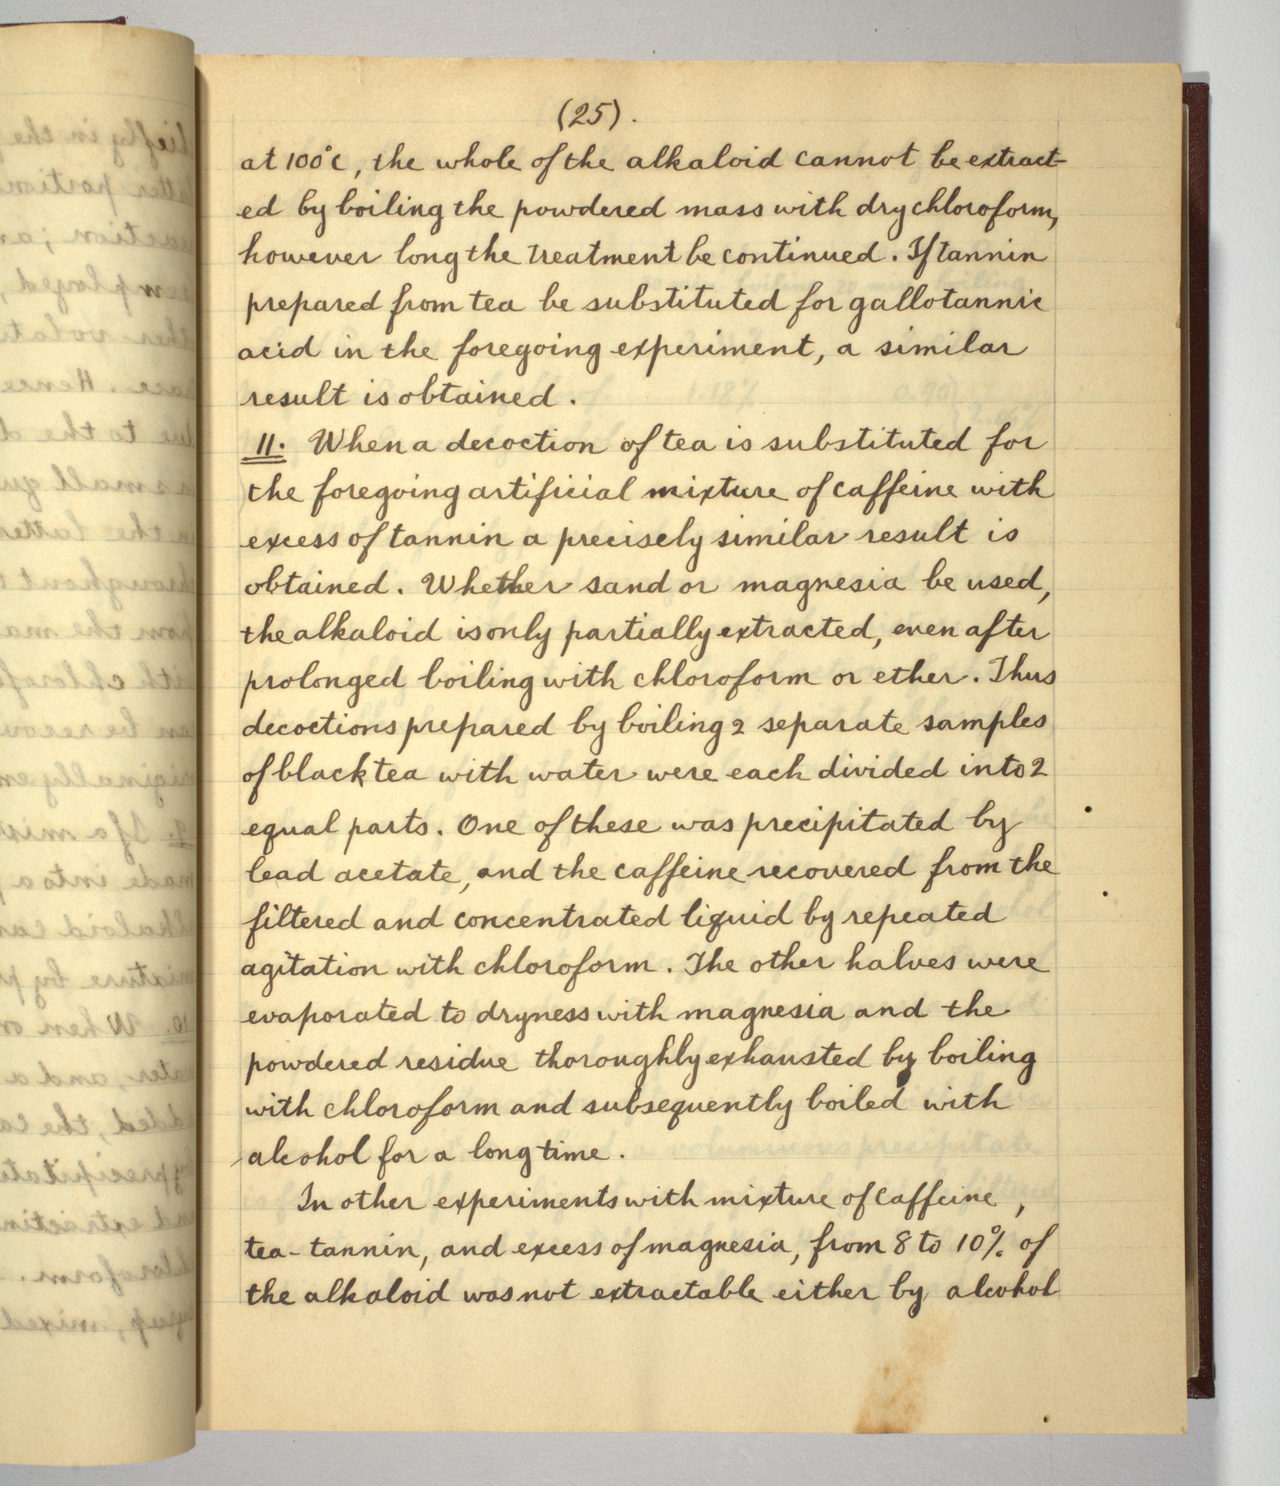 (25).
at 100°C, the whole of the alkaloid cannot be extract-
ed by boiling the powdered mass with dry chloroform,
however long the treatment be continued. If tannin
prepared from tea be substituted for gallotannic
acid in the foregoing experiment, a similar
result is obtained.
11. When a decoction of tea is substituted for
the foregoing artificial mixture of caffeine with
excess of tannin a precisely similar result is
obtained. Whether sand or magnesia be used,
the alkaloid is only partially extracted, even after
prolonged boiling with chloroform or ether. Thus
decoctions prepared by boiling 2 separate samples
of black tea with water were each divided into 2
equal parts. One of these was precipitated by
lead acetate, and the caffeine recovered from the
filtered and concentrated liquid by repeated
agitation with chloroform. The other halves were
evaporated to dryness with magnesia and the
powdered residue thoroughly exhausted by boiling
with chloroform and subsequently boiled with
alcohol for a long time.
In other experiments with mixture of caffeine,
tea-tannin, and excess of magnesia, from 8 to 10% of
the alkaloid was not extractable either by alcohol